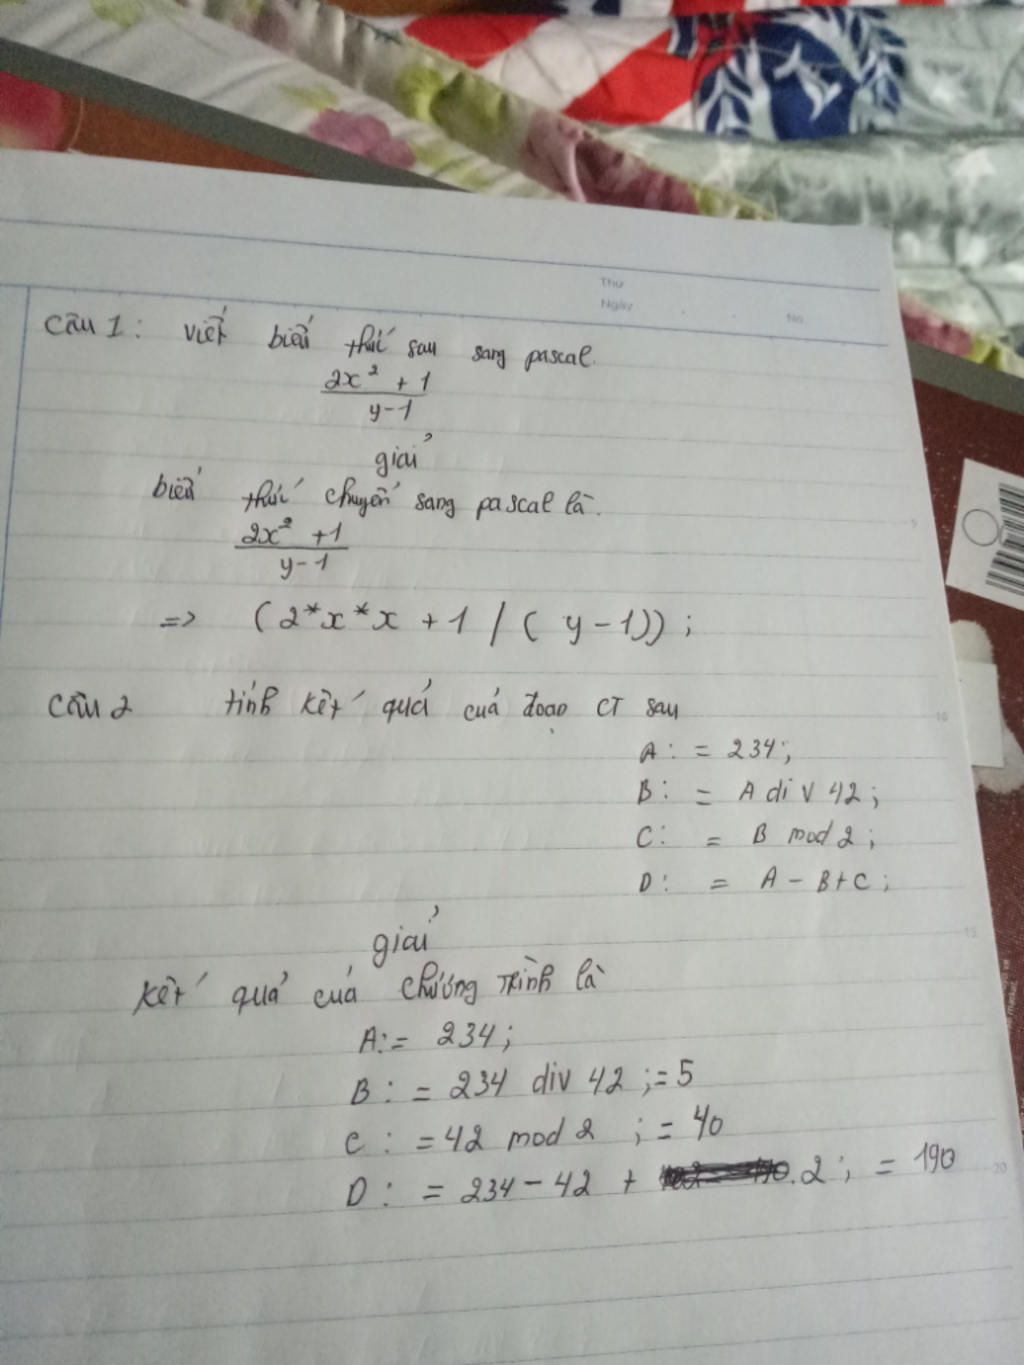 Thứ
Ngày
No.
Câu 1: viết biểu thức sau sang pascal.
2x² + 1
y-1
giải
biểu thức chuyển sang pascal là.
2x² +1
y-1
=> (2*x*x + 1 / ( y-1)) ;
Câu 2 tính kết quả của đoạn CT sau
A: = 234;
B: = A div 42;
C: = B mod 2;
D: = A - B+C;
giải
kết quả của chương trình là
A:= 234;
B: = 234 div 42 ;=5
C: =42 mod 2 ;= 40
D: = 234-42 + 2; = 190
5
10
15
20